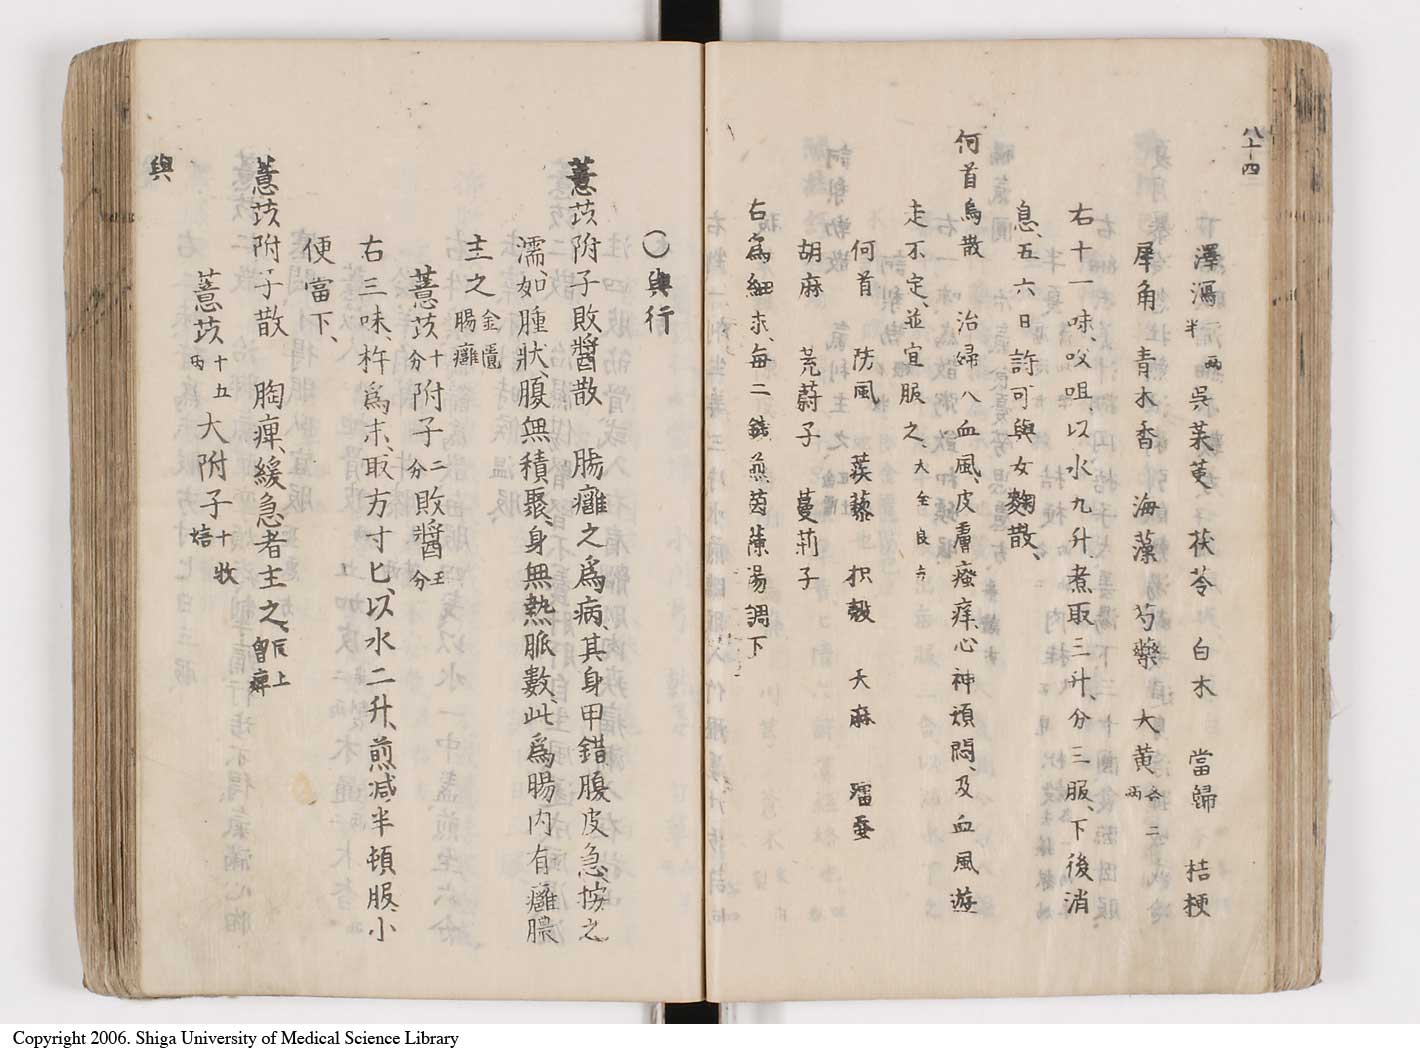 八十四
澤瀉半兩 呉茱萸 茯苓 白木 當歸 桔梗
犀角 青木香 海藻 芍藥 大黄各二兩
右十一味、㕮咀、以水九升煮取三升、分三服、下後消
息、五六日、許可與女麴散、
何首烏散 治婦人血風、皮膚瘙痒、心神煩悶、及血風遊
走不定、並宜服之、
何首 防風 蒺藜 枳殻 天麻 殭蚕
胡麻 茺蔚子 蔓荊子
右爲細末、毎二錢煎茵蔯湯調下
〇與行
薏苡附子敗醬散 腸癰之爲病、其身甲錯腹皮急、按之
濡、如腫狀、腹無積聚、身無熱脈數、此爲腸内有癰膿
主之 金匱腸癰
薏苡十分 附子二分 敗醬五分
右三味、杵爲末、取方寸匕、以水二升、煎減半頓服、小
便當下、
薏苡附子散 胸痺、緩急者主之、仝上胷痺
薏苡十五兩 大附子十枚
與
Copyright 2006. Shiga University of Medical Science Library